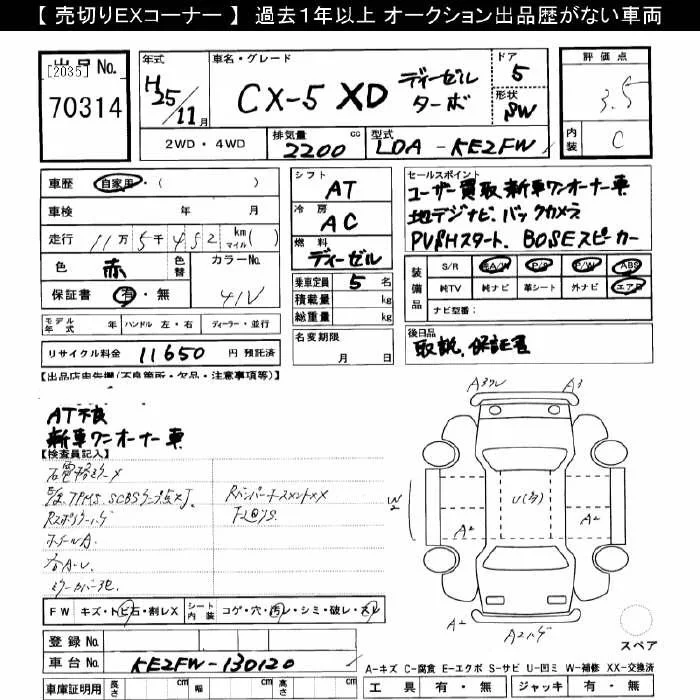 【 売切りEXコーナー 】 過去1年以上 オークション出品歴がない車両
出品No.
[2035]
70314
年式
H25/11月
車名・グレード
CX-5 XD ディーゼルターボ
ドア
5
形状
SW
評価点
3.5
内装
C
2WD・4WD
排気量
2200 cc
型式
LDA-KE2FW
車歴 自家用・( )
車検 年 月
走行 11万5千452 km マイル ( )
色 赤
色替
カラーNo.
41V
保証書 有・無
シフト
AT
冷房
AC
燃料
ディーゼル
乗車定員 5 名
積載量 kg
総重量 kg
セールスポイント
ユーザー買取 新車ワンオーナー車
地デジナビ. バックカメラ
PUSHスタート. BOSEスピーカー
装備品
S/R 純A/W P/S P/W ABS
純TV 純ナビ 革シート 外ナビ エアB
ナビ型番:
モデル年式 年 ハンドル 左・右 ディーラー・並行
リサイクル料金 11650 円 預託済
名変期限
月 日
後日品
取説. 保証書
【出品店申告欄(不良箇所・欠品・注意事項等)】
AT不良
新車ワンオーナー車
【検査員記入】
ホイールA
F W キズ・トビ石・割レX
シート内装 コゲ・穴・汚レ・シミ・破レ・スレ
登録No.
車台No. KE2FW-130120
車庫証明用 長さ cm 幅 cm 高さ cm
A3
W2
U(多)
A2
A2
A2
スペア
A-キズ C-腐食 E-エクボ S-サビ U-凹ミ W-補修 XX-交換済
工具 有・無 ジャッキ 有・無